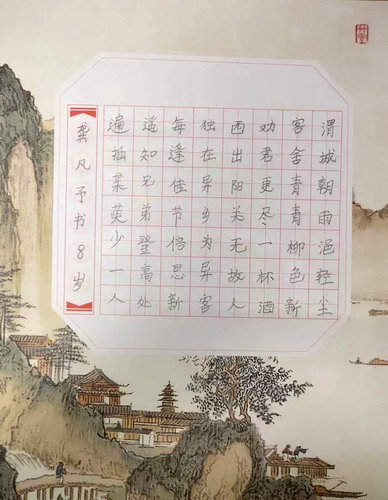 渭城朝雨浥轻尘
客舍青青柳色新
劝君更尽一杯酒
西出阳关无故人
独在异乡为异客
每逢佳节倍思新
遥知兄弟登高处
遍插茱萸少一人
龚凡予书8岁